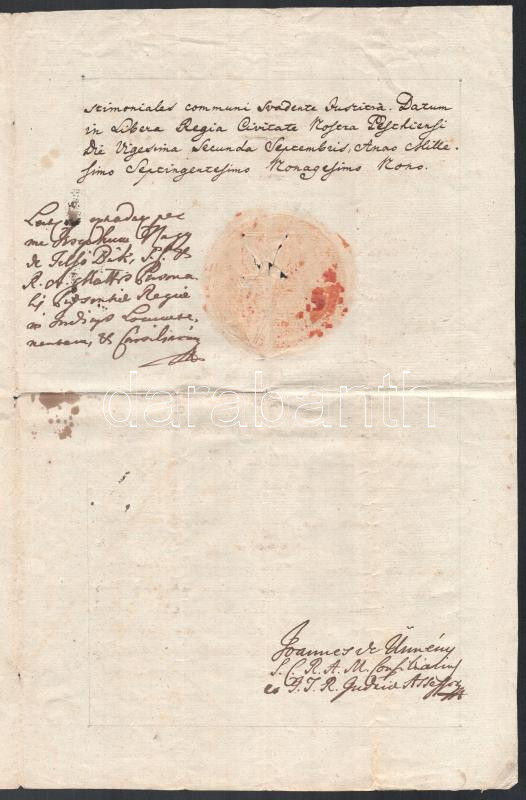 stimoniales communi svadente Justitia. Datum
in Libera Regia Civitate Nostra Pesthiensi
Die Vigesima Secunda Septembris, Anno Mille-
simo Septingentesimo Nonagesimo Nono.
per
me Josephum Nagy
de Felső Bük, S. C. &
R. A. Mattis Persona-
lis Presentiæ Regiæ
in Judiciis Locumte-
nentem, & Consiliarium
darabanth
Joannes de Ürmény
S. C. R. A. M. Consiliarius
et T. J. R. Judria Assessor